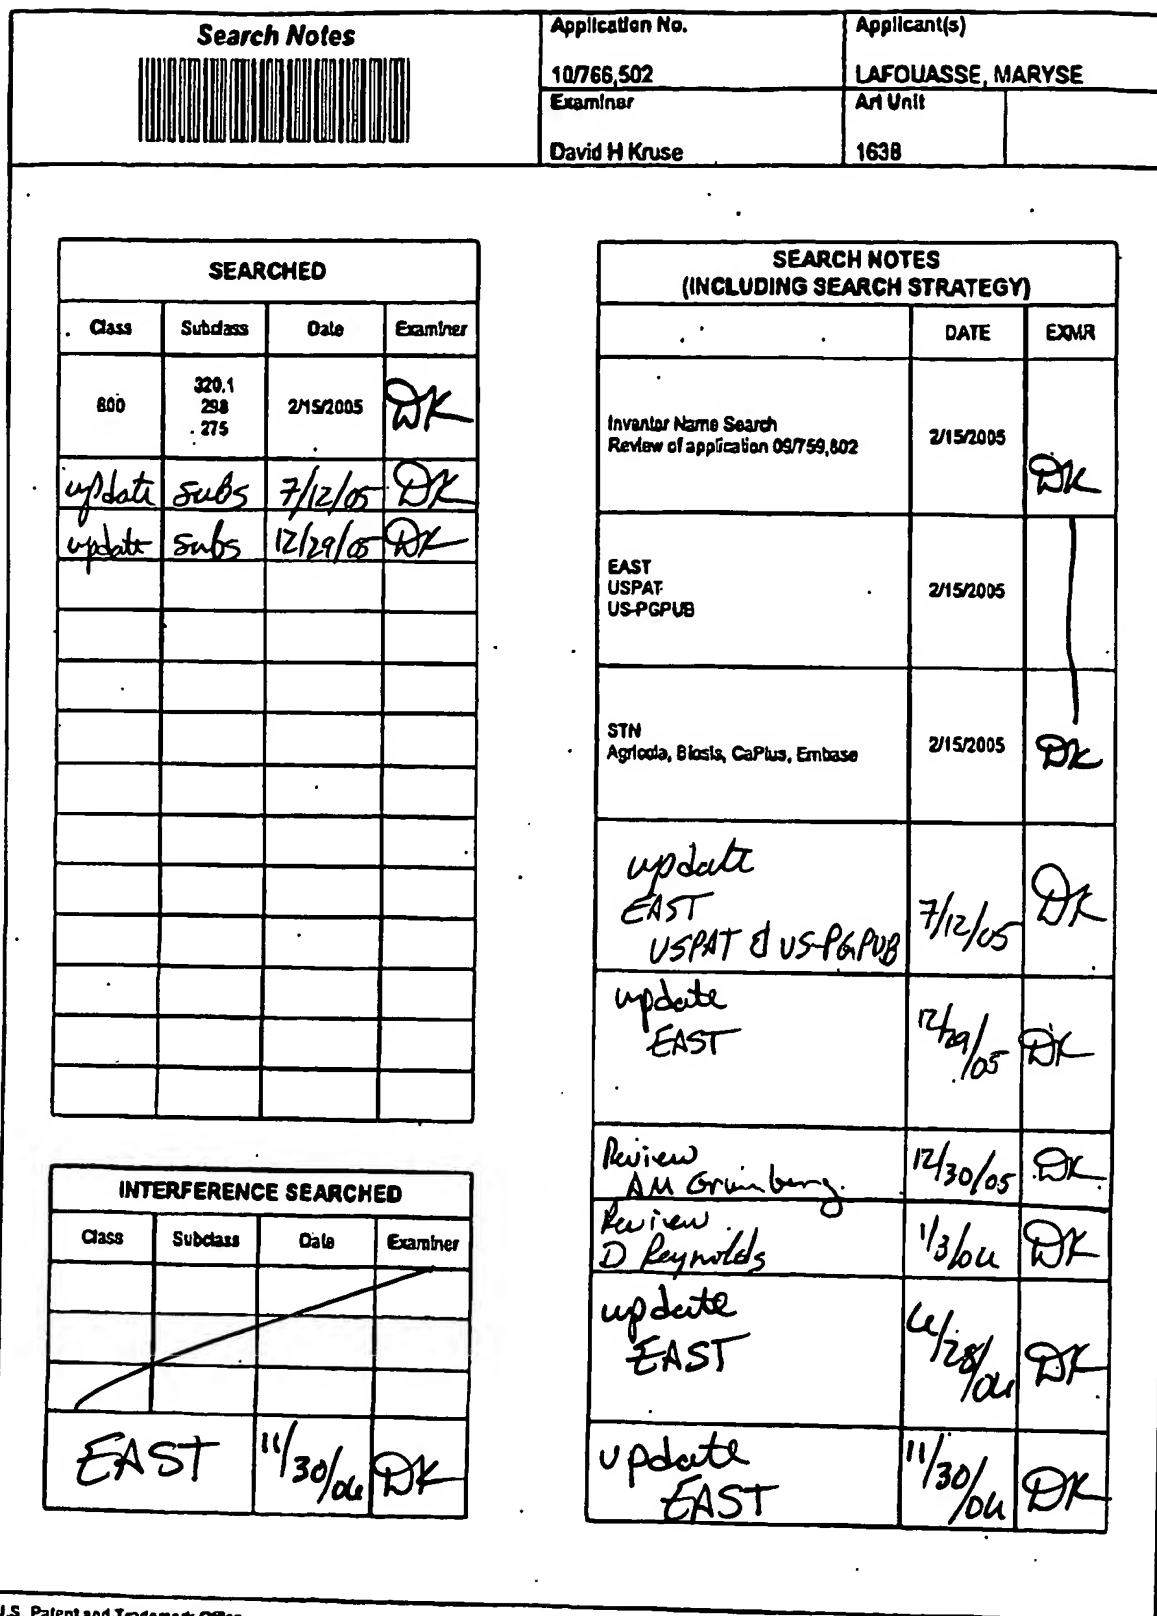 Search Notes
Application No.
10/766,502
Applicant(s)
LAFOUASSE, MARYSE
Examiner
David H Kruse
Art Unit
1638
SEARCHED
Class Subclass Date Examiner
800 320.1 2/15/2005 DK
298
275
update subs 7/12/05 DK
update subs 12/29/05 DK
INTERFERENCE SEARCHED
Class Subclass Date Examiner
EAST 11/30/06 DK
SEARCH NOTES
(INCLUDING SEARCH STRATEGY)
DATE EXMR
Inventor Name Search
Review of application 09/759,802 2/15/2005 DK
EAST
USPAT
US-PGPUB 2/15/2005
STN
Agricola, Biosis, CaPlus, Embase 2/15/2005 DK
update
EAST
USPAT & US-PGPUB 7/12/05 DK
update
EAST 12/29/05 DK
Review
AM Grunberg 12/30/05 DK
Review
D Reynolds 1/3/06 DK
update
EAST 6/28/06 DK
update
EAST 11/30/06 DK
U.S. Patent and Trademark Office